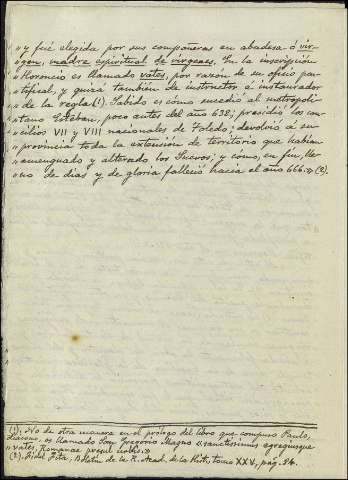 » y fué elegida por sus compañeras en abadesa ó vir-
» gen, madre espiritual de vírgenes. En la inscripción
» Horoncio es llamado vates, por razón de su oficio pon-
» tifical, y quizá también de instructor é instaurador
» de la regla (1). Sabido es cómo sucedió al metropoli-
» tano Esteban, poco antes del año 638; presidió los con-
» cilios VII y VIII nacionales de Toledo; devolvió á su
» provincia toda la extensión de territorio que habían
» amenguado y alterado los Suevos; y cómo, en fin, lle-
» no de días y de gloria falleció hacia el año 666.» (2).
(1). No de otra manera en el prólogo del libro que compuso Paulo,
diácono, es llamado San Gregorio Magno «sanctissimus egregiusque
» vates, Romanae presul urbis.»
(2). Fidel Fita: Boletín de la R. Acad. de la Hist., tomo XXV, pág.